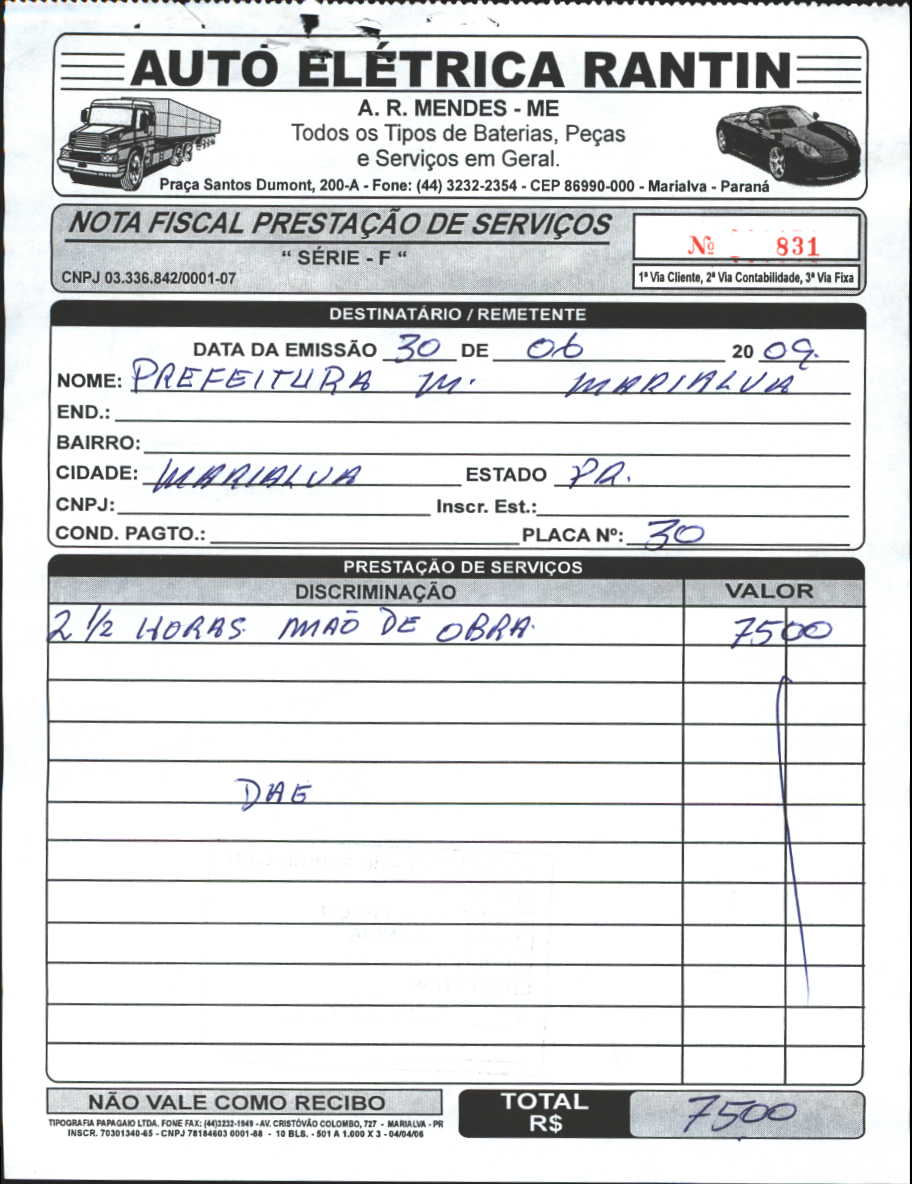 AUTO ELÉTRICA RANTIN
A. R. MENDES - ME
Todos os Tipos de Baterias, Peças
e Serviços em Geral.
Praça Santos Dumont, 200-A - Fone: (44) 3232-2354 - CEP 86990-000 - Marialva - Paraná
NOTA FISCAL PRESTAÇÃO DE SERVIÇOS
“ SÉRIE - F “
Nº 831
CNPJ 03.336.842/0001-07
1ª Via Cliente, 2ª Via Contabilidade, 3ª Via Fixa
DESTINATÁRIO / REMETENTE
DATA DA EMISSÃO 30 DE 06 20 09.
NOME: PREFEITURA M. MARIALVA
END.:
BAIRRO:
CIDADE: MARIALVA ESTADO PR.
CNPJ: Inscr. Est.:
COND. PAGTO.: PLACA Nº: 30
PRESTAÇÃO DE SERVIÇOS
DISCRIMINAÇÃO VALOR
2 1/2 HORAS MÃO DE OBRA. 7500
DAE
NÃO VALE COMO RECIBO
TOTAL R$ 7500
TIPOGRAFIA PAPAGAIO LTDA. FONE FAX: (44)3232-1949 - AV. CRISTÓVÃO COLOMBO, 727 - MARIALVA - PR
INSCR. 70301340-65 - CNPJ 78184603 0001-88 - 10 BLS. - 501 A 1.000 X 3 - 04/04/06